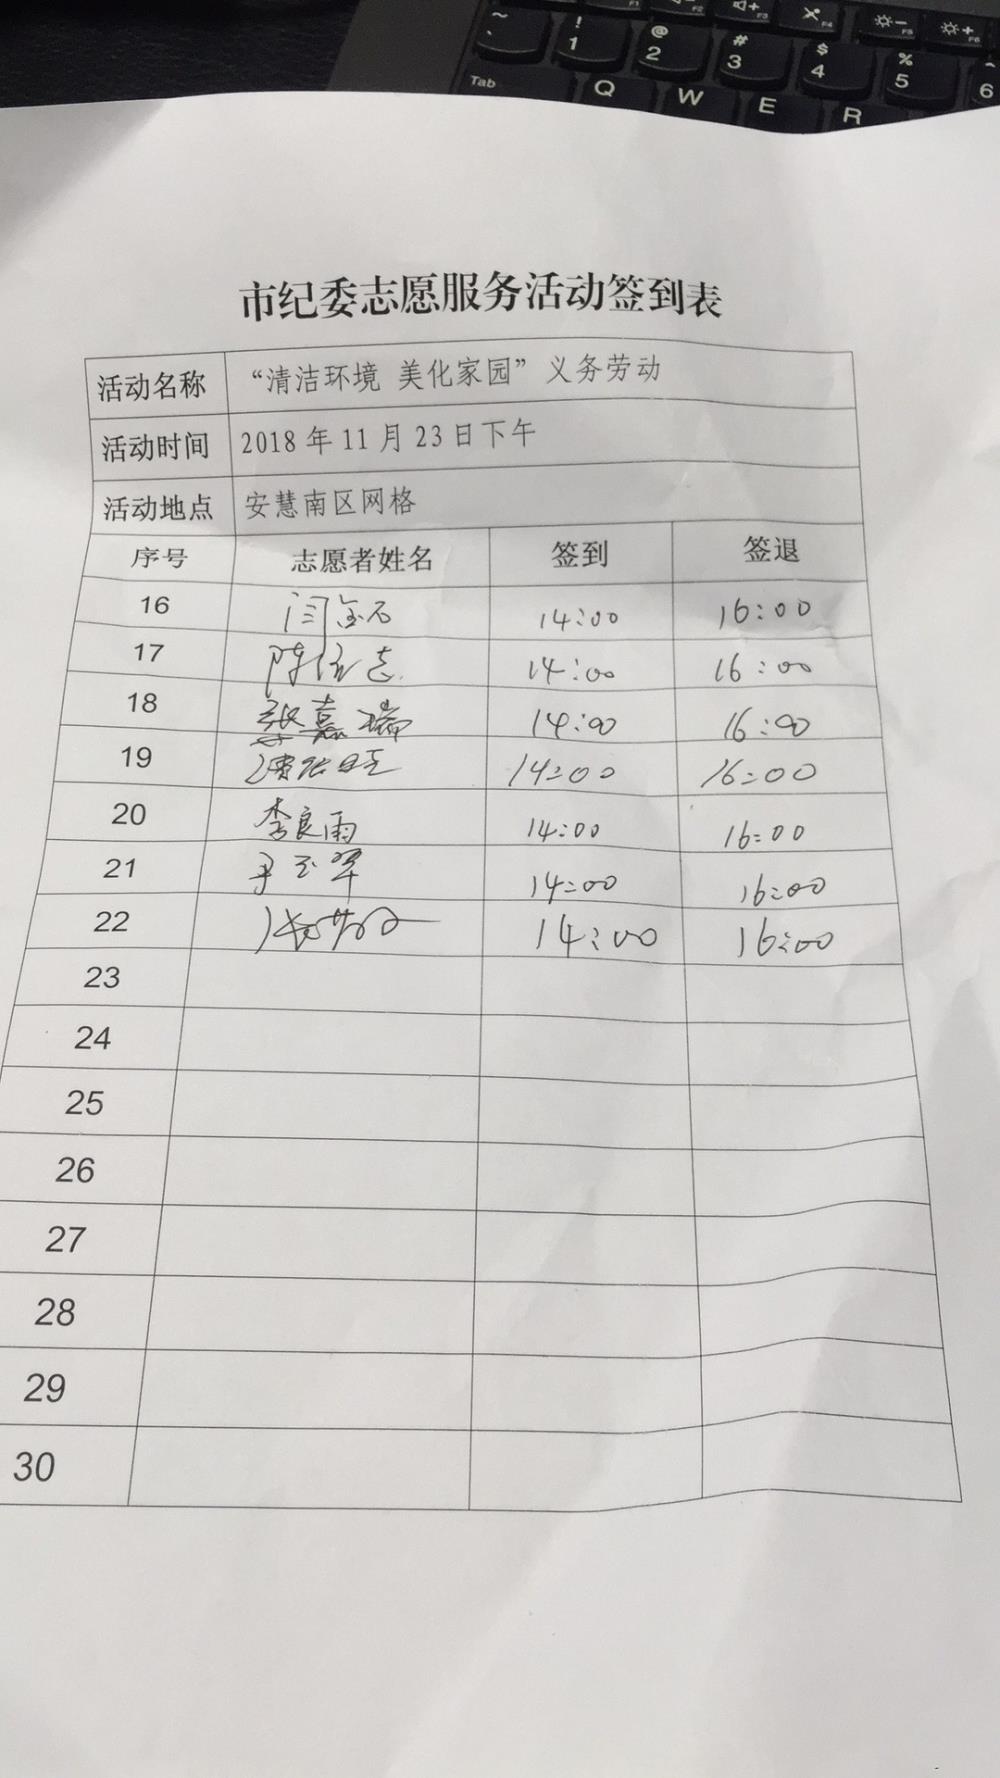 ~ `
! 1
@ 2
# 3
$ 4
% 5
6
Tab Q W E R
市纪委志愿服务活动签到表
活动名称 “清洁环境 美化家园”义务劳动
活动时间 2018年11月23日下午
活动地点 安慧南区网格
序号 志愿者姓名 签到 签退
16 闫金石 14:00 16:00
17 14:00 16:00
18 梁嘉瑞 14:00 16:00
19 14:00 16:00
20 李良雨 14:00 16:00
21 尹玉翠 14:00 16:00
22 14:00 16:00
23
24
25
26
27
28
29
30